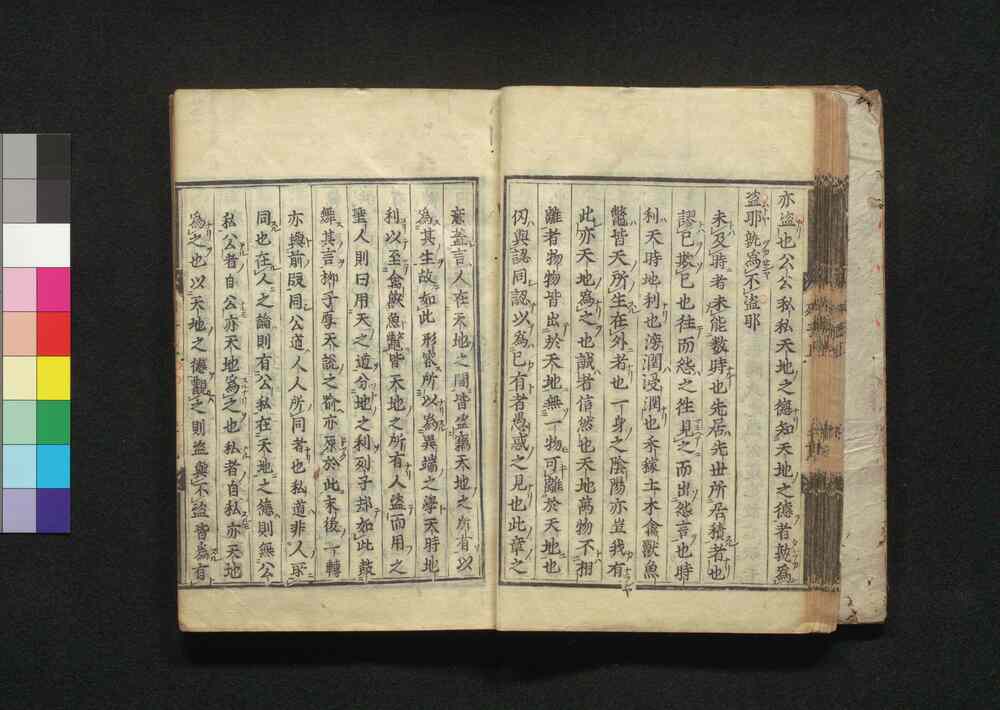 亦盜也公公私私天地之德知天地之德者孰為
盜耶孰為不盜耶
未及時者未能數時也先居先世所居積者也
謬已欺已也往而怨之往見之而出怨言也時
利天時地利也滂潤浸潤也禾稼土木禽獸魚
鼈皆天所生在外者也一身之陰陽亦豈我有
此亦天地為之也誠者信然也天地萬物不相
離者物物皆出於天地無一物可離於天地也
仞與認同認以為已有者愚惑之見也此章之
意蓋言人在天地之間皆盜竊天地之所有以
為其生故如此形容所以為異端之學天時地
利以至禽獸魚鼈皆天地之所有人盜而用之
聖人則曰用天之道分地之利列子却如此鼓
舞其言柳子厚天說之喻亦原於此末後一轉
亦與前段同公道人人所同者也私道非人所
同也在人之論則有公私在天地之德則無公
私公者自公亦天地為之也私者自私亦天地
為之也以天地之德觀之則盜與不盜皆為有